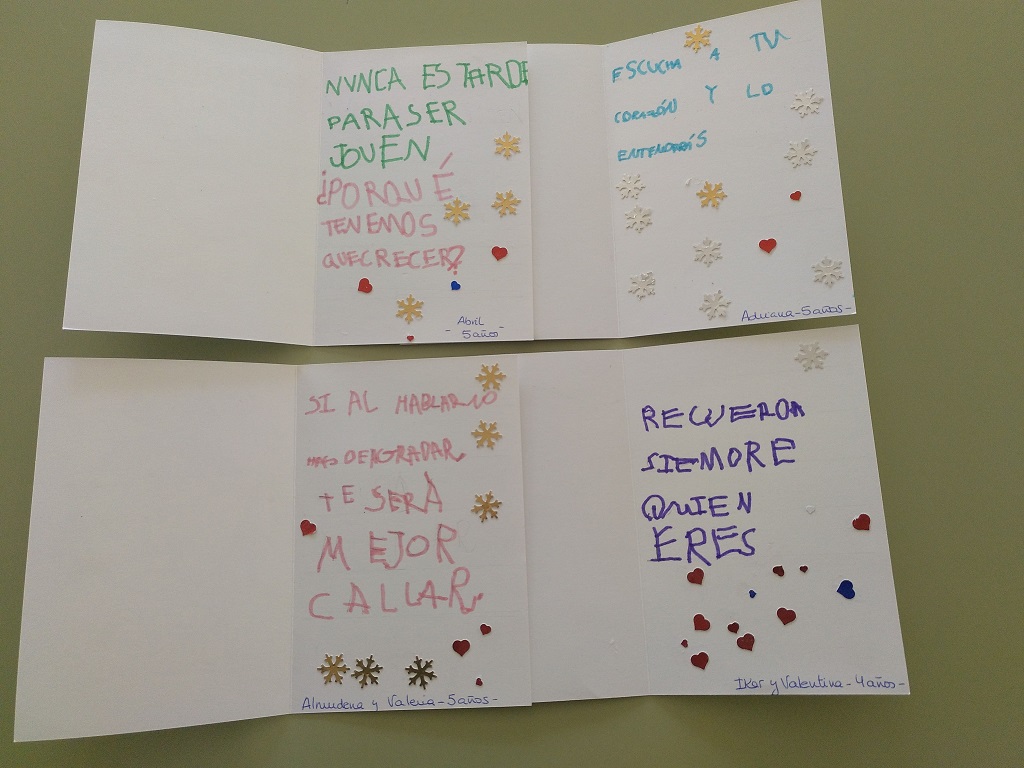 NUNCA ES TARDE
PARA SER
JOVEN
¿PORQUÉ
TENEMOS
QUE CRECER?
- Abril -
5 años
ESCUCHA A TU
CORAZÓN Y LO
ENTENDERÁS
Adriana - 5 años -
SI AL HABLAR NO
HAS DE AGRADAR,
TE SERÁ
MEJOR
CALLAR.
Almudena y Valeria - 5 años -
RECUERDA
SIEMORE
QUIEN
ERES
Iker y Valentina - 4 años -